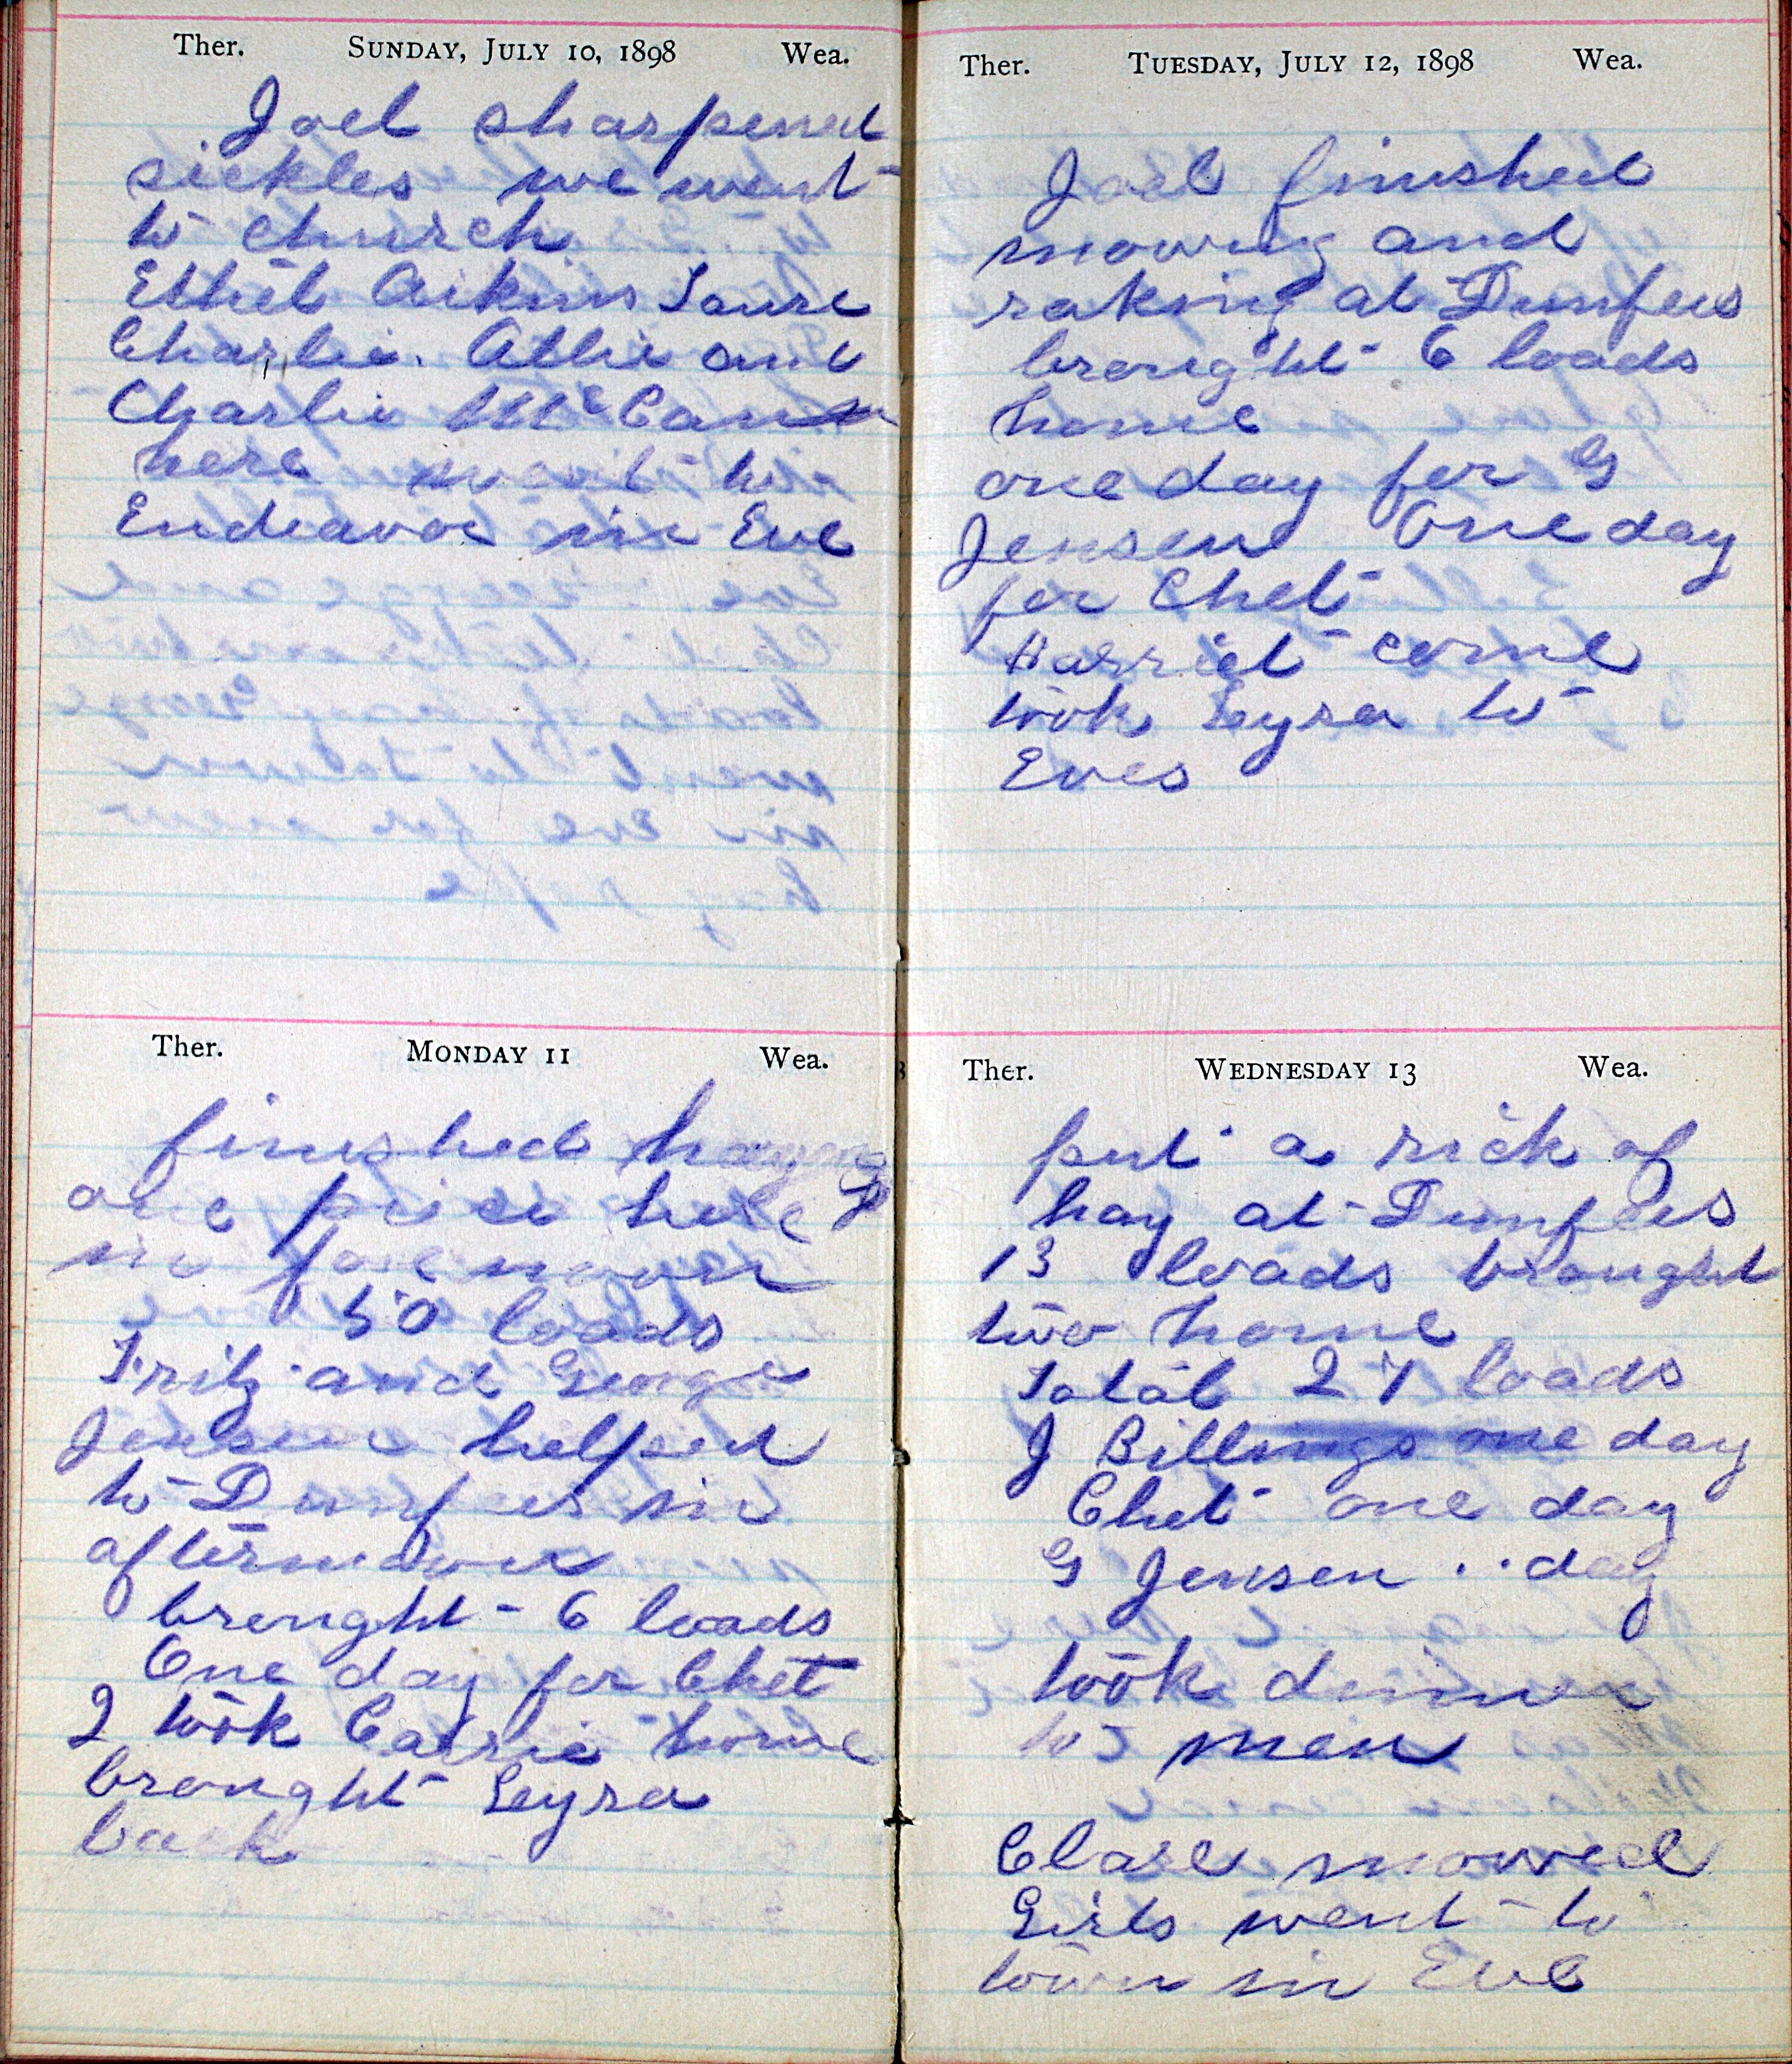 Ther. SUNDAY, JULY 10, 1898 Wea.
Joel sharpened
sickles we went
to church
Ethel Aikins Laure
Charlie. Allie and
Charlie McCann
here went to
Endeavor in Eve
Ther. MONDAY 11 Wea.
finished haying
one piece here
in forenoon
50 loads
Fritz and George
Jensen helped
to Dunfees in
afternoon
brought 6 loads
One day for Chet
I took Carrie home
brought Leysa
back
Ther. TUESDAY, JULY 12, 1898 Wea.
Joel finished
mowing and
raking at Dunfees
brought 6 loads
home
one day for G
Jensen One day
for Chet
Harriet come
took Leysa to
Eves
Ther. WEDNESDAY 13 Wea.
put a rick of
hay at Dunfees
13 loads brought
two home
Total 27 loads
J Billings one day
Chet one day
G Jensen .. day
took dinner
to 5 men
Clare mowed
Girls went to
town in Eve